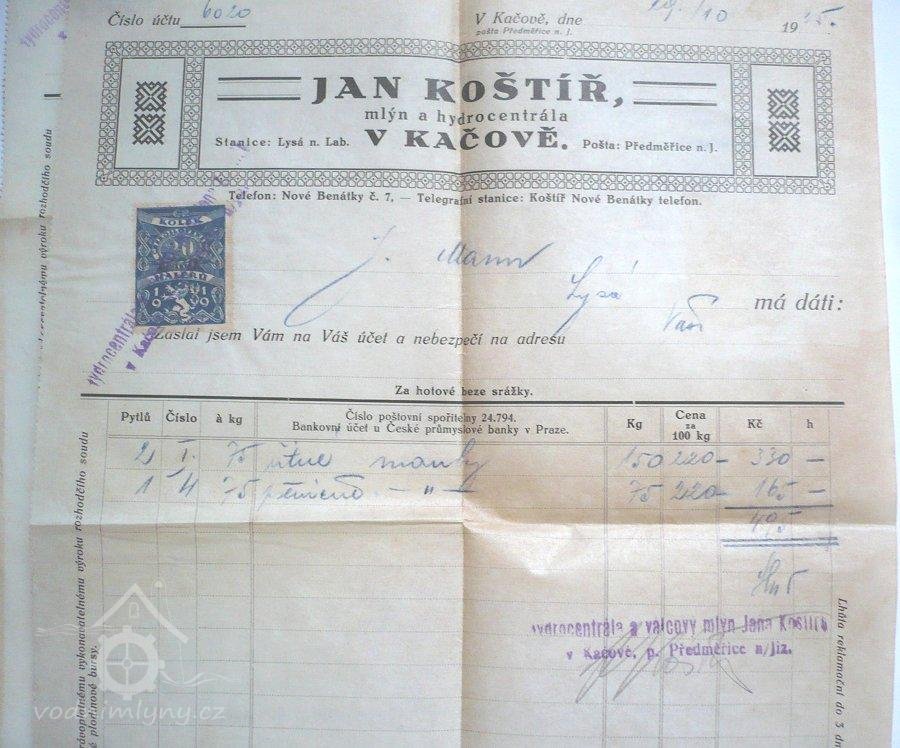 Číslo účtu 6020 V Kačově, dne 29./10 1925.
pošta Předměřice n. J.
JAN KOŠTÍŘ,
mlýn a hydrocentrála
Stanice: Lysá n. Lab. V KAČOVĚ. Pošta: Předměřice n. J.
Telefon: Nové Benátky č. 7, — Telegrafní stanice: Koštíř Nové Benátky telefon.
KOLEK
20
HALÉŘŮ
1919
J. Mann
Lysá
má dáti:
Zaslal jsem Vám na Váš účet a nebezpečí na adresu Vaši
Za hotové beze srážky.
Pytlů Číslo à kg Číslo poštovní spořitelny 24.794. Kg Cena za 100 kg Kč h
Bankovní účet u České průmyslové banky v Praze.
2 I. 75 žitné mouky 150 220— 330 —
1 4 75 pšeničné —„— 75 220— 165 —
495
hydrocentrála a válcový mlýn Jana Koštíře
v Kačově, p. Předměřice n/Jiz.
hydrocentrála
v Kačově
výroku rozhodčího soudu
právoplatnému vykonavatelnému výroku rozhodčího soudu
plodinové bursy.
Lhůta reklamační do 3
vodnimlyny.cz